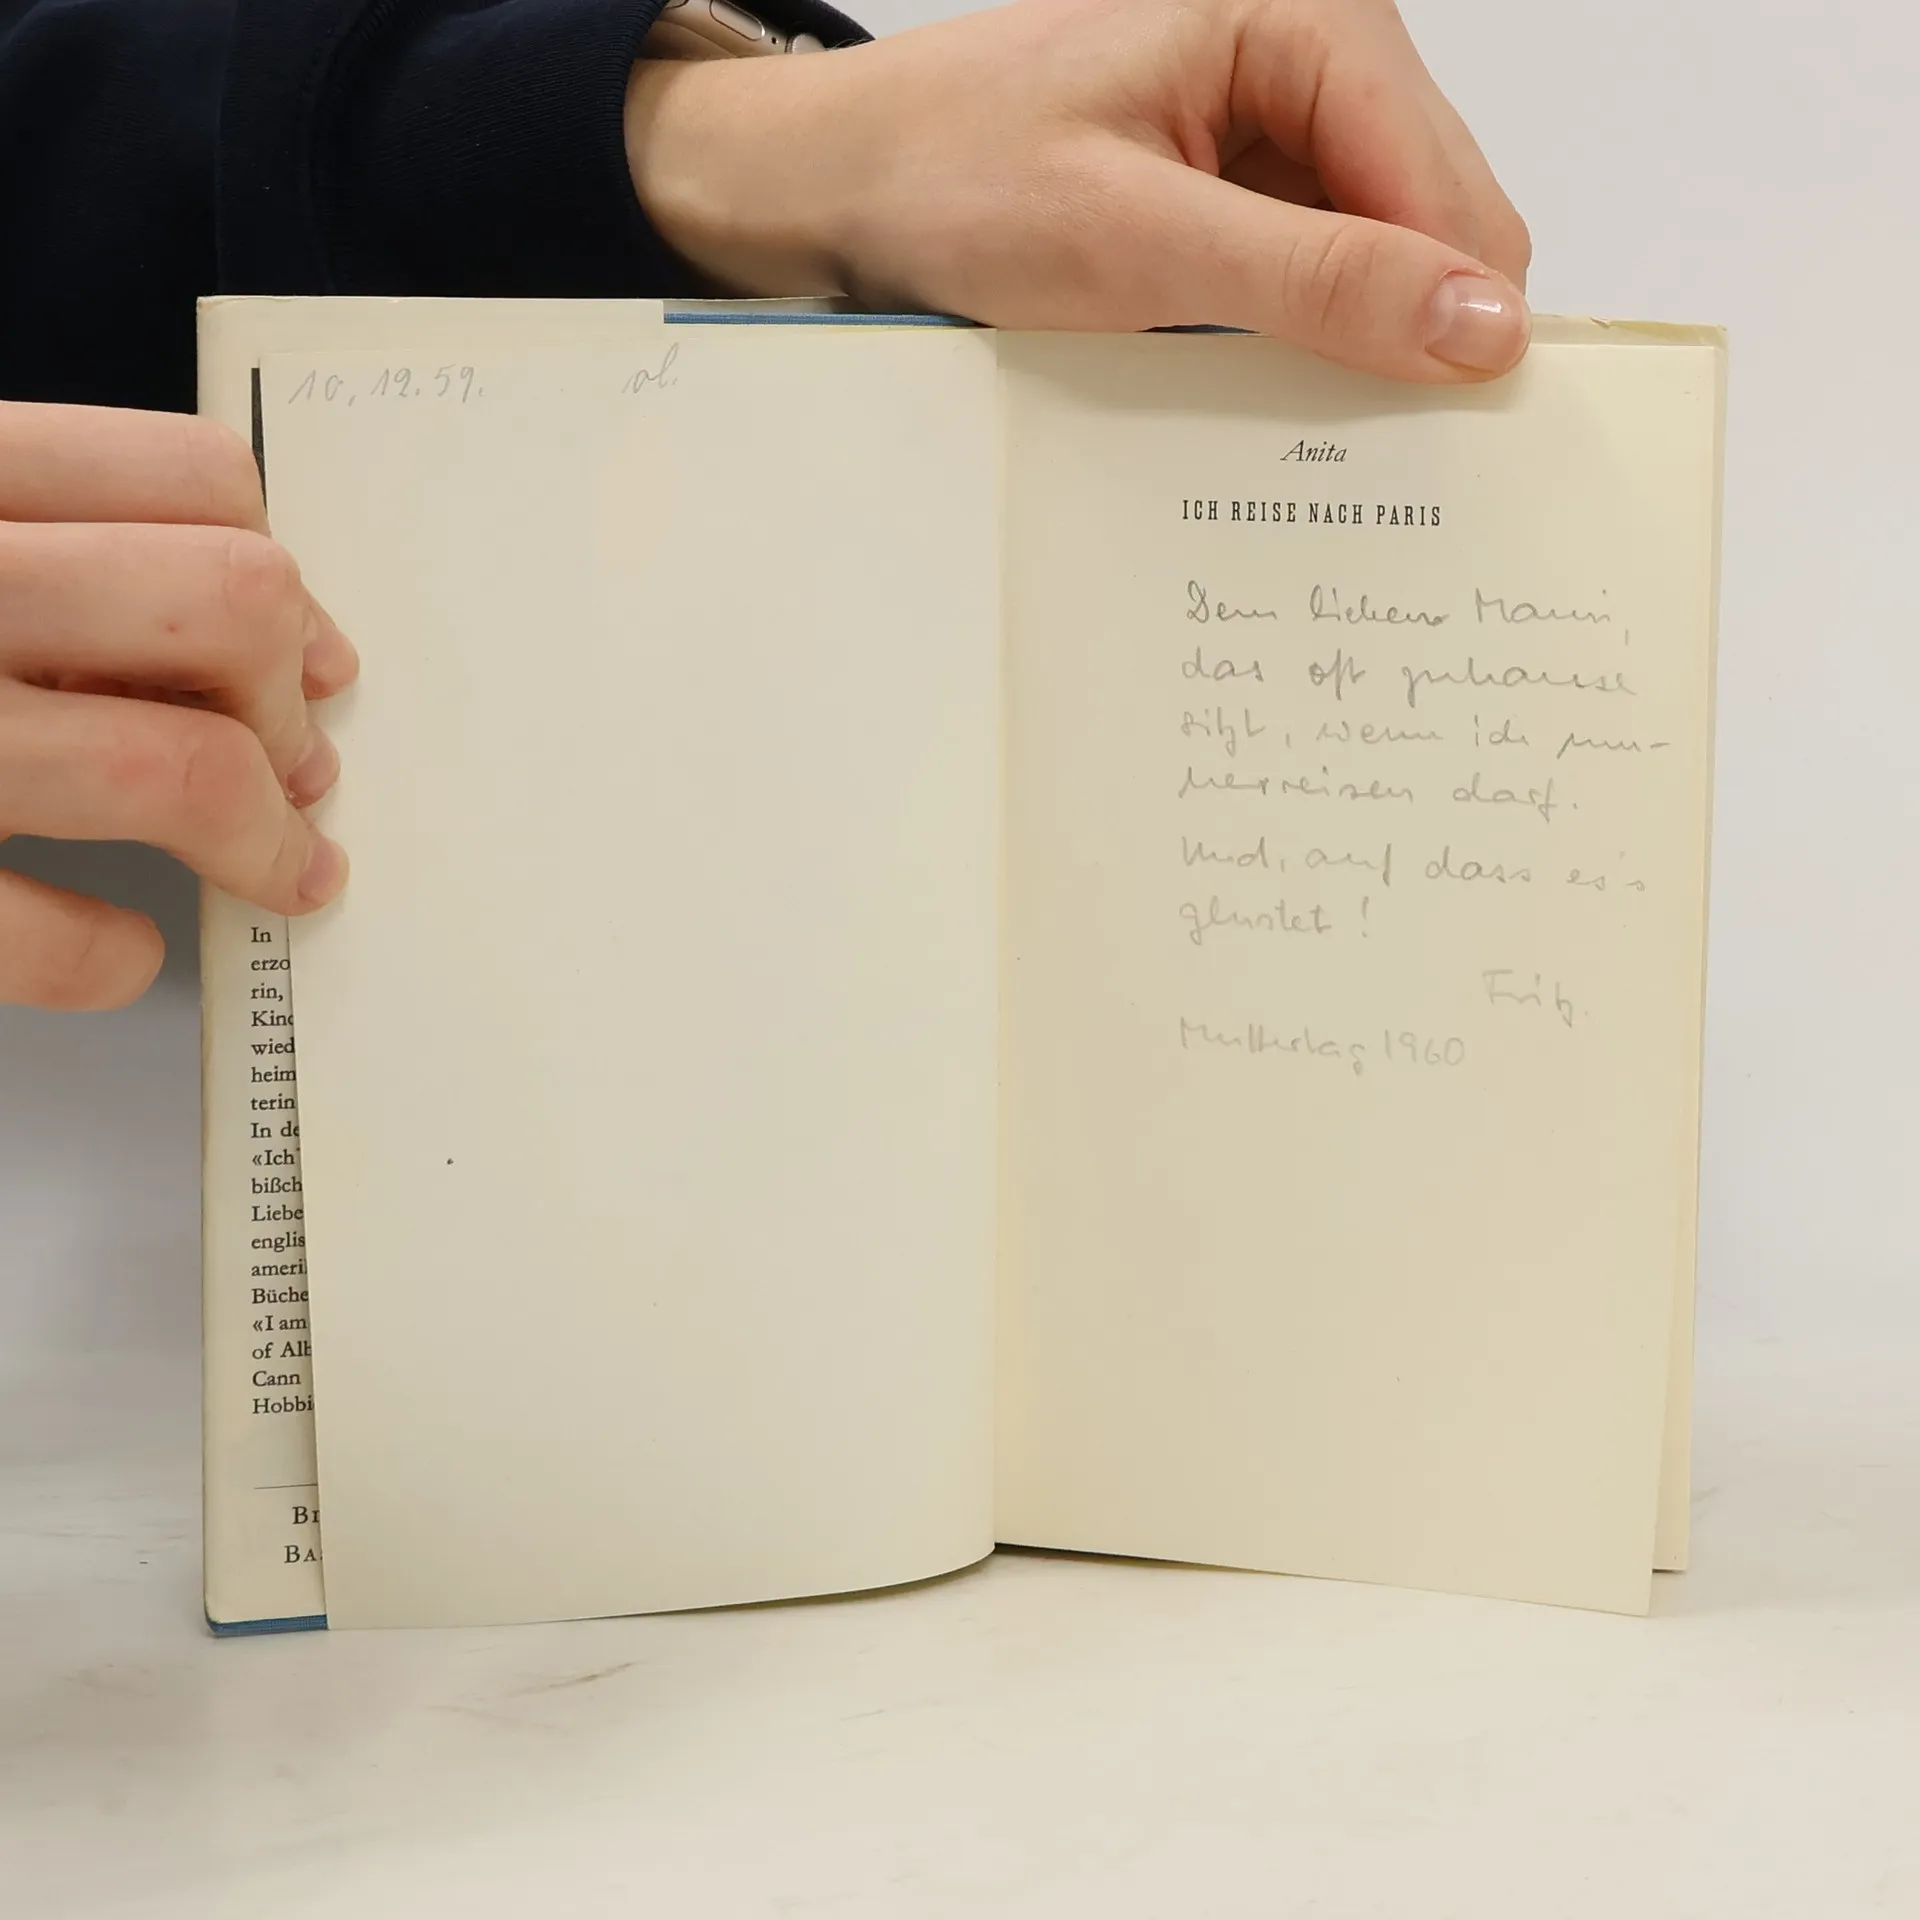 10. 12. 59.
In
erzo
rin,
Kind
wied
heim
terin
In de
«Ich
bißch
Liebe
englis
ameri
Büche
«I am
of Alb
Cann
Hobbi
Anita
ICH REISE NACH PARIS
Dem lieben Mami,
das oft zuhause
sitzt, wenn ich um-
herreisen darf.
Und, auf dass es's
glustet!
Fritz.
Muttertag 1960